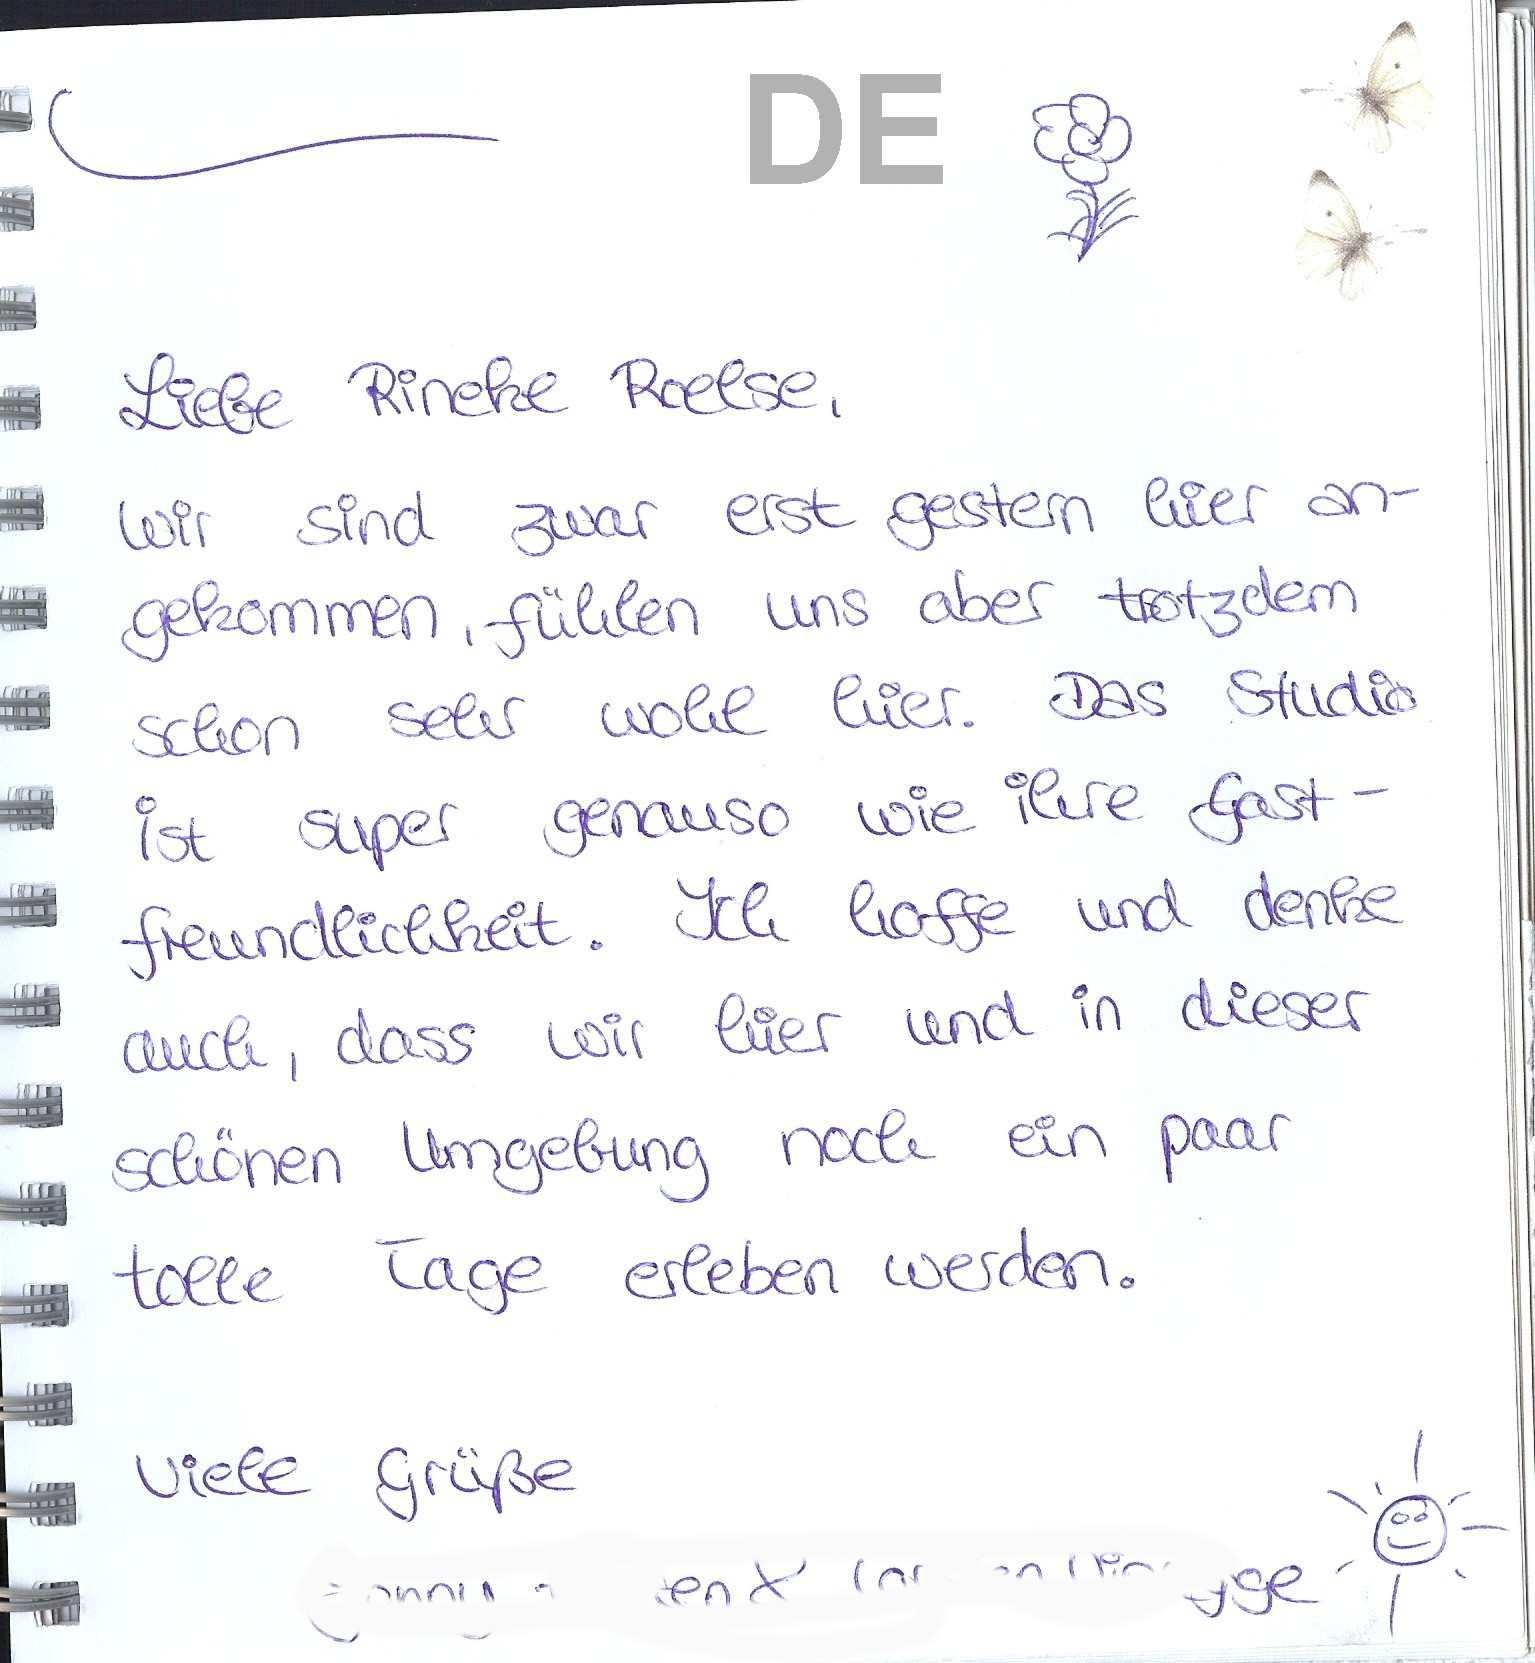 DE
Liebe Rineke Roelse,
wir sind zwar erst gestern hier an-
gekommen, fühlen uns aber trotzdem
schon sehr wohl hier. Das Studio
ist super genauso wie ihre Gast-
freundlichkeit. Ich hoffe und denke
auch, dass wir hier und in dieser
schönen Umgebung noch ein paar
tolle Tage erleben werden.
Viele Grüße